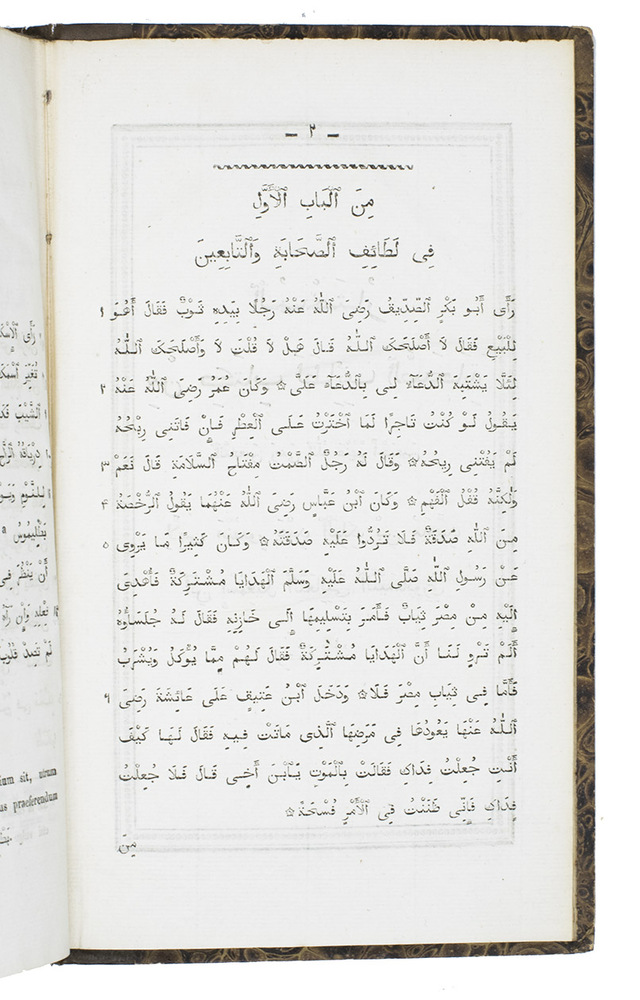 — ٢ —
مِنَ ٱلْبَابِ ٱلْأَوَّلِ
فِي لَطَائِفِ ٱلصَّحَابَةِ وَٱلتَّابِعِينَ
رَأَى أَبُو بَكْرٍ ٱلصِّدِّيقُ رَضِيَ ٱللّٰهُ عَنْهُ رَجُلًا بِيَدِهِ ثَوْبٌ فَقَالَ أَهُوَ ١
لِلْبَيْعِ فَقَالَ لَا أَصْلَحَكَ ٱللّٰهُ قَالَ هَلْ لَا قُلْتَ لَا وَأَصْلَحَكَ ٱللّٰهُ
لِئَلَّا يَشْتَبِهَ ٱلدُّعَاءُ لِي بِٱلدُّعَاءِ عَلَىَّ ۞ وَكَانَ عُمَرُ رَضِيَ ٱللّٰهُ عَنْهُ ٢
يَقُولُ لَوْ كُنْتُ تَاجِرًا لَمَا ٱخْتَرْتُ عَلَى ٱلْعِطْرِ فَإِنْ فَاتَنِي رِبْحُهُ
لَمْ يَفُتْنِي رِيحُهُ ۞ وَقَالَ لَهُ رَجُلٌ ٱلصَّمْتُ مِفْتَاحُ ٱلسَّلَامَةِ قَالَ نَعَمْ ٣
وَلٰكِنَّهُ قُفْلُ ٱلْفَهْمِ ۞ وَكَانَ ٱبْنُ عَبَّاسٍ رَضِيَ ٱللّٰهُ عَنْهُمَا يَقُولُ ٱلرُّخْصَةُ ۴
مِنَ ٱللّٰهِ صَدَقَةٌ فَلَا تَرُدُّوا عَلَيْهِ صَدَقَتَهُ ۞ وَكَانَ كَثِيرًا مَا يَرْوِي ٥
عَنْ رَسُولِ ٱللّٰهِ صَلَّى ٱللّٰهُ عَلَيْهِ وَسَلَّمَ ٱلْهَدَايَا مُشْتَرِكَةٌ فَأُهْدِيَ
إِلَيْهِ مِنْ مِصْرَ ثِيَابٌ فَأَمَرَ بِتَسْلِيمِهَا إِلَى خَازِنِهِ فَقَالَ لَهُ جُلَسَاؤُهُ
أَلَمْ تَرْوِ لَنَا أَنَّ ٱلْهَدَايَا مُشْتَرِكَةٌ فَقَالَ لَهُمْ مِمَّا يُؤْكَلُ وَيُشْرَبُ
فَأَمَّا فِي ثِيَابِ مِصْرَ فَلَا ۞ وَدَخَلَ ٱبْنُ عَتِيقٍ عَلَى عَائِشَةَ رَضِيَ ٦
ٱللّٰهُ عَنْهَا يَعُودُهَا فِي مَرَضِهَا ٱلَّذِي مَاتَتْ فِيهِ فَقَالَ لَهَا كَيْفَ
أَنْتِ جُعِلْتُ فِدَاكِ فَقَالَتْ بِٱلْمَوْتِ يَا ٱبْنَ أَخِي قَالَ فَلَا جُعِلْتُ
فِدَاكِ فَإِنِّي ظَنَنْتُ فِي ٱلْأَمْرِ فُسْحَةً ۞
مِنَ
ium sit, utrum
us praeferendum